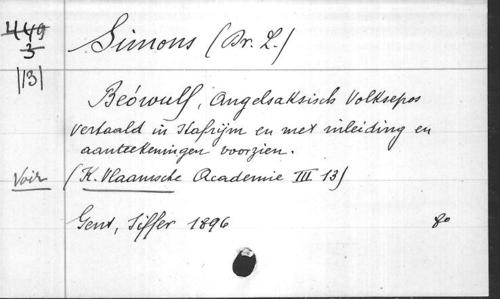 449
3
Simons (Dr. L.)
|13|
Beówulf, Angelsaksisch Volksepos
vertaald in Stafrijm en met inleiding en
aanteekeningen voorzien.
Voir (K. Vlaamsche Academie III 13)
Gent, Siffer 1896 8o